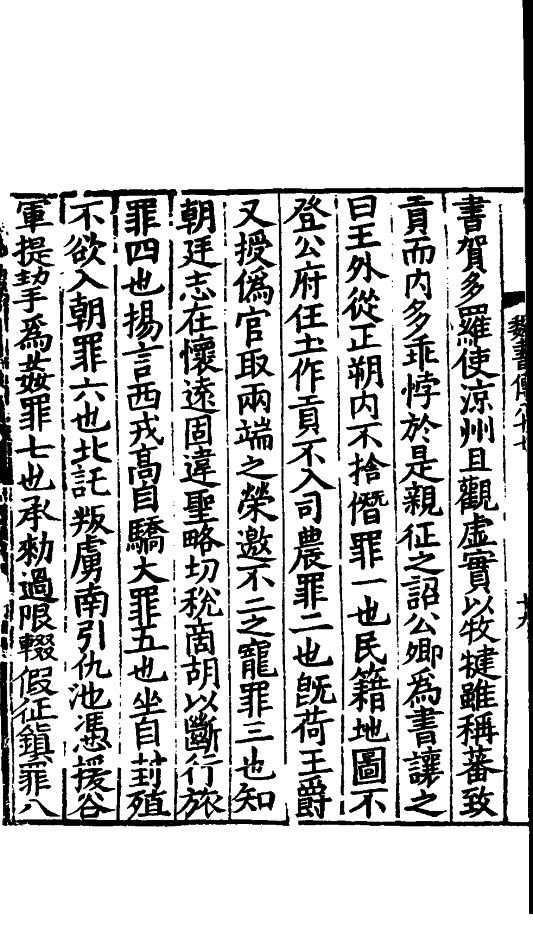 魏書傳八十七
十九
書賀多羅使涼州且觀虛實以牧犍雖稱蕃致
貢而內多乖悖於是親征之詔公卿為書讓之
曰王外從正朔內不捨僭罪一也民籍地圖不
登公府任土作貢不入司農罪二也旣荷王爵
又授僞官取兩端之榮邀不二之寵罪三也知
朝廷志在懷遠固違聖略切稅商胡以斷行旅
罪四也揚言西戎高自驕大罪五也坐自封殖
不欲入朝罪六也北託叛虜南引仇池憑援谷
軍提挈為姦罪七也承勑過限輟假征鎮罪八